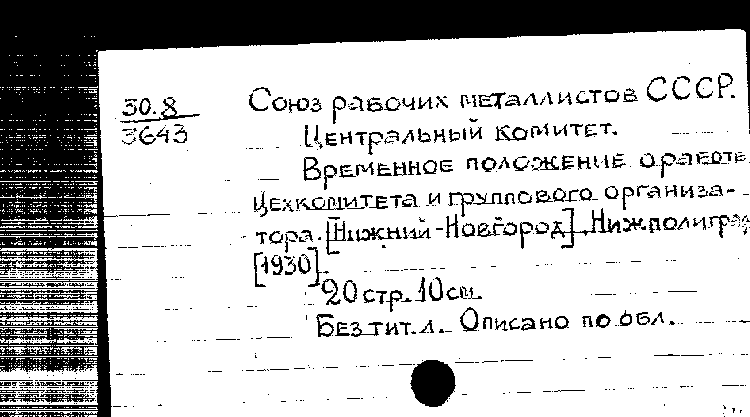 30.8
3643
Союз рабочих металлистов СССР.
Центральный комитет.
Временное положение о работе
цехкомитета и группового организа-
тора. [Нижний-Новгород]. Нижполиграф
[1930].
20 стр. 10 см.
Без тит. л. Описано по обл.